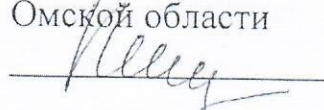 Омской области